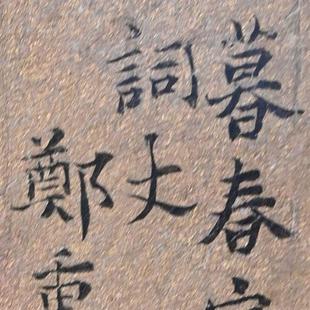 暮春
詞丈
鄭重